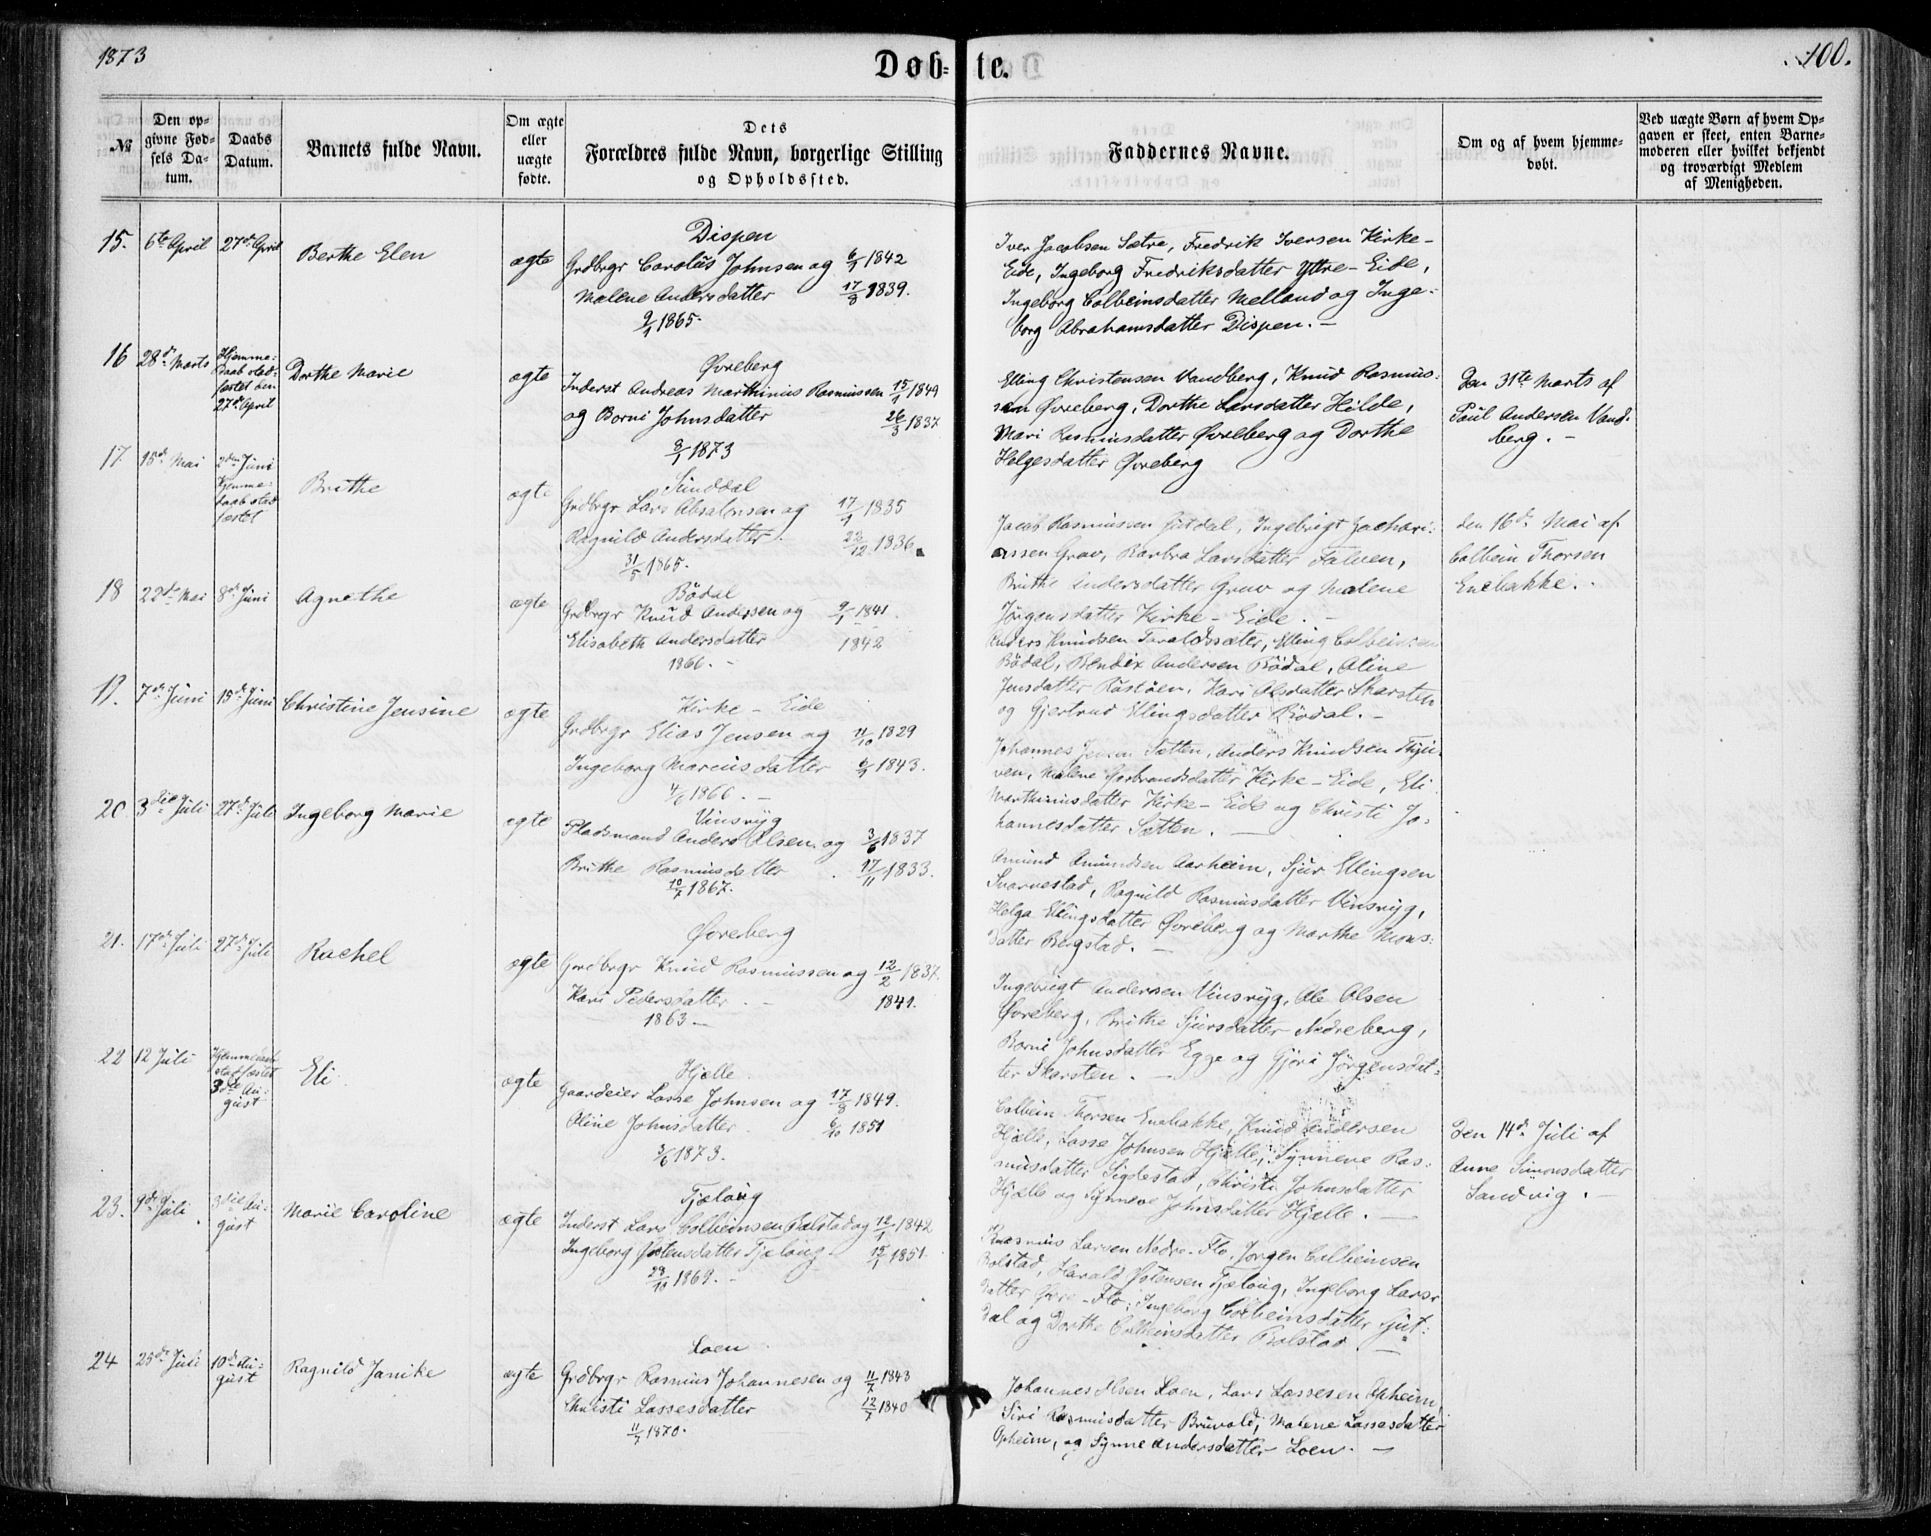 1873
Døb-
te.
100.
№
Den op-
givne Fød-
sels Da-
tum.
Daabs
Datum.
Barnets fulde Navn.
Om ægte
eller
uægte
fødte.
Dets
Forældres fulde Navn, borgerlige Stilling
og Opholdssted.
Faddernes Navne.
Om og af hvem hjemme-
døbt.
Ved uægte Børn af hvem Op-
gaven er skeet, enten Barne-
moderen eller hvilket bekjendt
og troværdigt Medlem
af Menigheden.
15. 6te April 27de April Berthe Elen ægte
Dispen
Grdbrgr Carolus Johnsen og 6/1 1842
Malene Andersdatter 17/8 1839.
9/1 1865.
Iver Jacobsen Sætre, Fredrik Iversen Kirke-
Eide, Ingeborg Fredriksdatter Yttre-Eide,
Ingeborg Colbeinsdatter Melland og Inge-
borg Abrahamsdatter Dispen. -
16 28de Marts
Hjemme-
Daab stad-
fæstet den
27de April
Dorthe Marie ægte
Øvreberg
Inderst Andreas Marthinius Rasmussen 15/1 1849
og Borni Johnsdatter 26/3 1837
3/1 1873
Elling Christensen Vandberg, Knud Rasmus-
sen Øvreberg, Dorthe Larsdatter Hilde,
Mari Rasmusdatter Øvreberg og Dorthe
Helgesdatter Øvreberg
Den 31te Marts af
Paul Andersen Vand-
berg. -
17 15de Mai
2den Juni
hjemme-
daab stad
fæstet
Brithe ægte
Sunddal
Grdbrgr Lars Absalonsen og 17/1 1835
Ragnild Andersdatter 23/12 1836.
31/5 1865.
Jacob Rasmussen Gutdal, Ingebrigt Zachari-
assen Grav, Barbra Larsdatter
Brithe Andersdatter Grav og Malene
Jørgensdatter Kirke-Eide. -
den 16de Mai af
Colbein Thorsen
Enebakke. -
18 22de Mai 8de Juni Agnethe ægte
Bødal
Grdbrgr Knud Andersen og 9/1 1841.
Elisabeth Andersdatter 1842
1866. -
Anders Knudsen Taraldsæter, Elling Colbeinsen
Bødal, Bendix Andersen Bødal, Oline
Jensdatter Rastøen, Kari Olsdatter Skarsten
og Gjertrud Ellingsdatter Bødal. -
19. 7de Juni 15de Juni Christine Jensine ægte
Kirke-Eide
Grdbrgr Elias Jensen og 11/10 1829
Ingeborg Mariusdatter 6/9 1843.
1866. -
Johannes Jensen Sætten, Anders Knudsen
Malene Kirke-Eide, Eli
Marthinusdatter Kirke-Eide og Christi Jo-
hannesdatter Sætten. -
20 3die Juli 27de Juli Ingeborg Marie ægte
Vinsryg
Pladsmand Anders Olsen og 3/6 1837
Brithe Rasmusdatter 17/11 1833.
10/7 1867.
Amund Amundsen Aarheim, Sjur Ellingsen
Svarvestad, Ragnild Rasmusdatter Vinsryg,
Helga Ellingsdatter Øvreberg og Marthe Mons-
datter Bergstad. -
21. 17de Juli 27de Juli Rachel ægte
Øvreberg
Grdbrgr Knud Rasmussen og 12/2 1837.
Kari Pedersdatter. - 1841.
1863 -
Ingebrigt Andersen Vinsryg, Ole Olsen
Øvreberg, Brithe Sjursdatter Nedreberg,
Borni Johnsdatter Egge og Gjøri Jørgensdat-
ter Skarsten. -
22 12 Juli
Hjemmedaab
stadfæstet
3die Au-
gust
Eli ægte
Hjelle
Gaardeier Lasse Johnsen og 17/8 1849.
Oline Johnsdatter 6/10 1851
3/6 1873.
Colbein Thorsen Enebakke, Knud Andersen
Hjelle, Lasse Johnsen Hjelle, Synneve Ras-
musdatter Sigdestad, Christi Johnsdatter
Hjelle og Synneve Johnsdatter Hjelle. -
Den 14de Juli af
Anne Simonsdatter
Sandvig. -
23. 9de Juli
3die Au-
gust
Marie Caroline ægte
Tjelaug
Inderst Lars Colbeinsen Bolstad og 12/1 1842
Ingeborg Østensdatter Tjelaug 15/1 1851.
23/10 1869. -
Rasmus Larsen Nedre-Flo, Jørgen Colbeinsen
Bolstad, Harald Østensen Tjelaug, Ingeborg Lars-
datter Øvre-Flo, Ingeborg Colbeinsdatter Gjut-
dal og Dorthe Colbeinsdatter Bolstad -
24 25de Juli
10de Au-
gust
Ragnild Janike ægte
Loen
Grdbrgr Rasmus Johannesen og 11/7 1843
Christi Lassesdatter 12/7 1840
11/7 1870.
Johannes Olsen Loen, Lars Lassesen Opheim,
Siri Rasmusdatter Bruvold, Malene Lassesdatter
Opheim, og Synne Andersdatter Loen. -